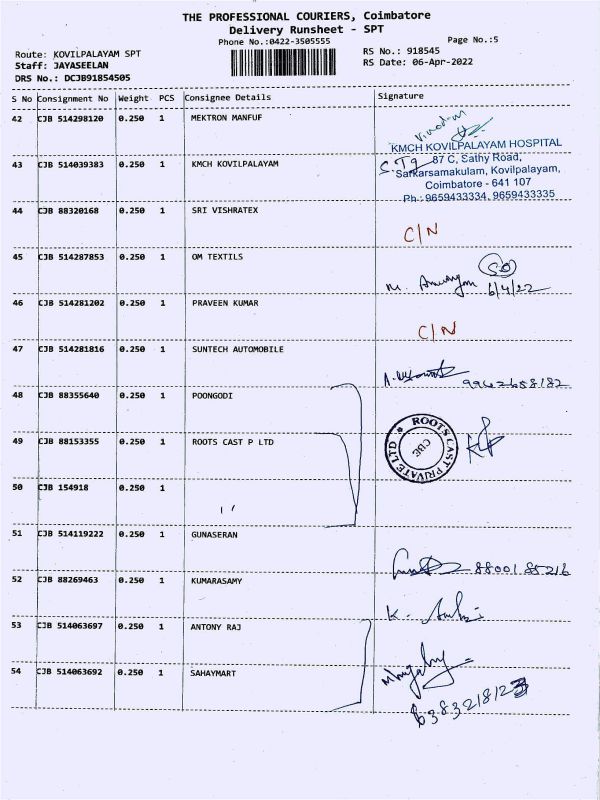 THE PROFESSIONAL COURIERS, Coimbatore
Delivery Runsheet - SPT
Phone No.:0422-3505555
Page No.:5
Route: KOVILPALAYAM SPT
RS No.: 918545
Staff: JAYASEELAN
RS Date: 06-Apr-2022
DRS No.: DCJB91854505
S No Consignment No Weight PCS Consignee Details Signature
42 CJB 514298120 0.250 1 MEKTRON MANFUF
KMCH KOVILPALAYAM HOSPITAL
43 CJB 514039383 0.250 1 KMCH KOVILPALAYAM
87 C, Sathy Road,
Sarkarsamakulam, Kovilpalayam,
Coimbatore - 641 107
Ph : 9659433334, 9659433335
44 CJB 88320168 0.250 1 SRI VISHRATEX
C/N
45 CJB 514287853 0.250 1 OM TEXTILS
6/4/22
46 CJB 514281202 0.250 1 PRAVEEN KUMAR
C/N
47 CJB 514281816 0.250 1 SUNTECH AUTOMOBILE
9942658182
48 CJB 88355640 0.250 1 POONGODI
49 CJB 88153355 0.250 1 ROOTS CAST P LTD
ROOTS CAST PRIVATE LTD
CBE
50 CJB 154918 0.250 1
51 CJB 514119222 0.250 1 GUNASERAN
88001 85216
52 CJB 88269463 0.250 1 KUMARASAMY
K.
53 CJB 514063697 0.250 1 ANTONY RAJ
54 CJB 514063692 0.250 1 SAHAYMART